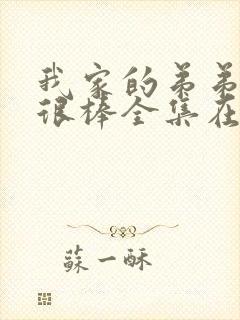 我家的弟弟
很棒全集在
蘇一酥